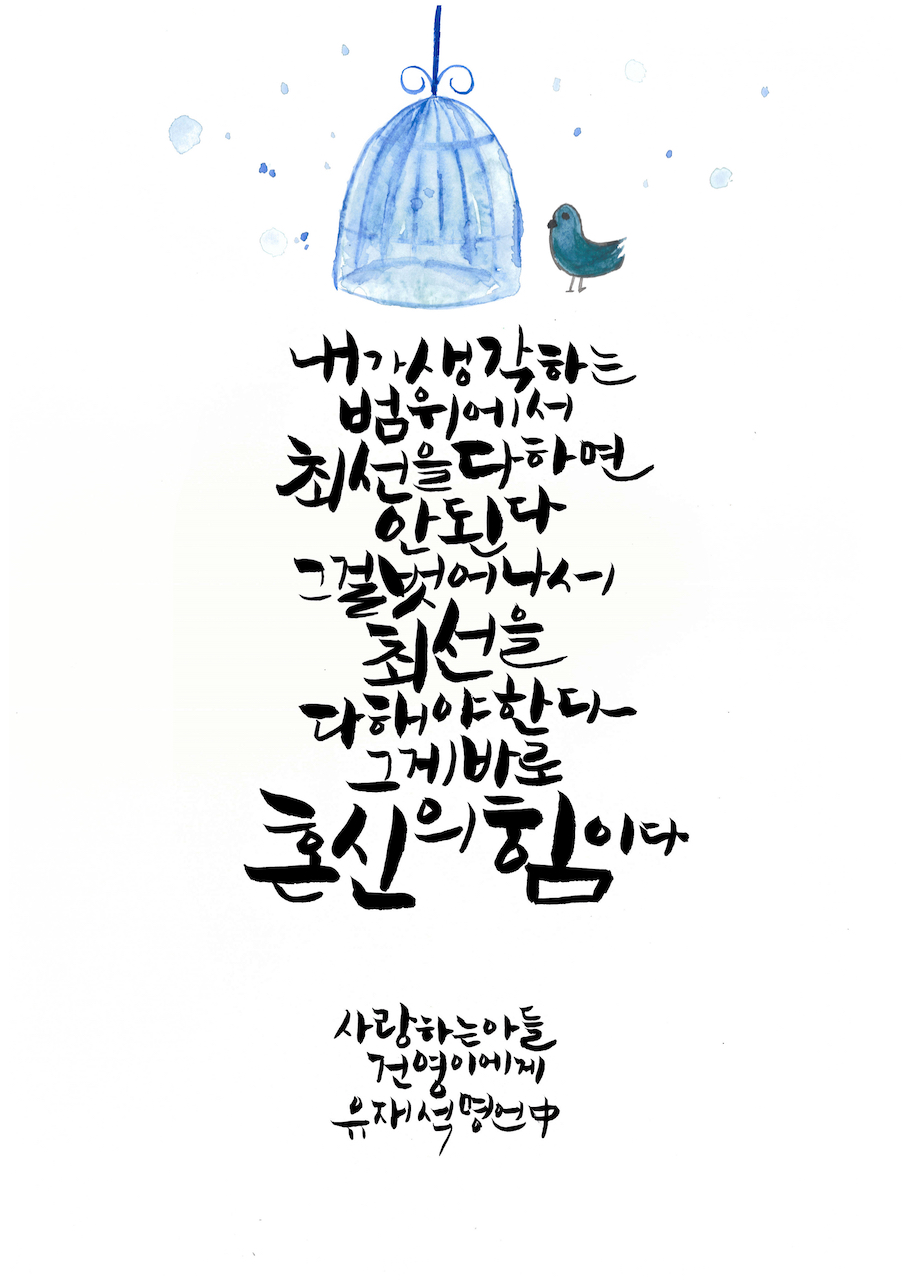 내가 생각하는
범위에서
최선을 다하면
안된다
그걸 벗어나서
최선을
다해야 한다
그게 바로
혼신의 힘이다
사랑하는 아들
건영이에게
유재석 명언 中